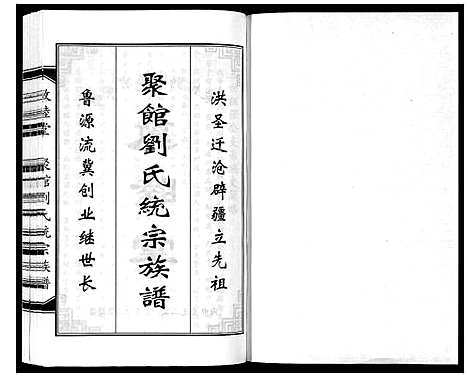 洪圣迁沧辟疆立先祖
聚館劉氏統宗族譜
鲁源流冀创业继世长
敦睦堂
聚館劉氏統宗族譜